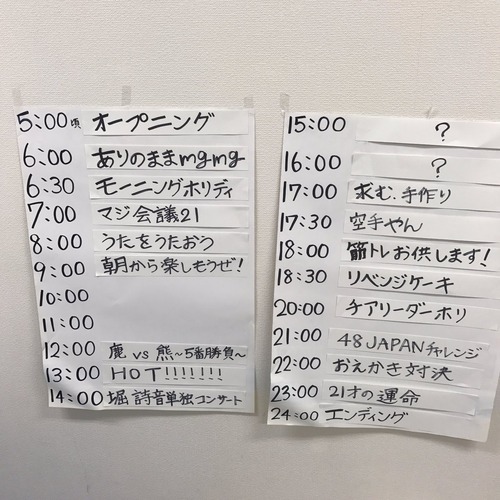 5:00頃 オープニング
6:00 ありのままmgmg
6:30 モーニングホリディ
7:00 マジ会議21
8:00 うたをうたおう
9:00 朝月から楽しもうぜ!
10:00
11:00
12:00 鹿 vs 熊~5番勝負~
13:00 HOT!!!!!!!
14:00 堀 詩音単独コンサート
15:00 ?
16:00 ?
17:00 求む、手作り
17:30 空手やん
18:00 筋トレお供します!
18:30 リベンジケーキ
20:00 チアリーダーホリ
21:00 48JAPANチャレンジ
22:00 おえかき対決
23:00 21才の運命
24:00 エンディング